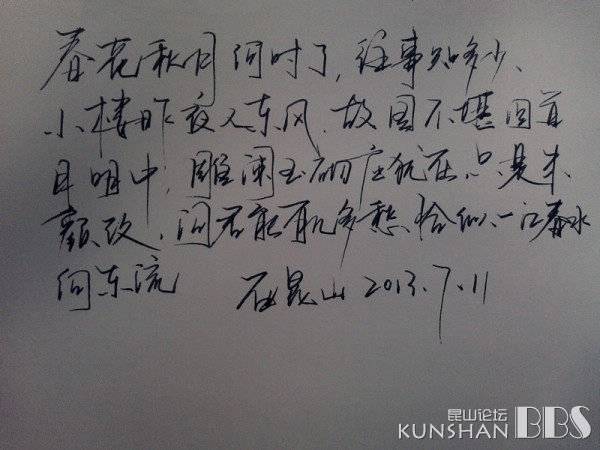 春花秋月何时了，往事知多少、
小楼昨夜又东风，故国不堪回首
月明中，雕阑玉砌应犹在，只是朱
颜改，问君能有几多愁，恰似一江春水
向东流 在昆山 2013.7.11
昆山论坛
KUNSHAN BBS